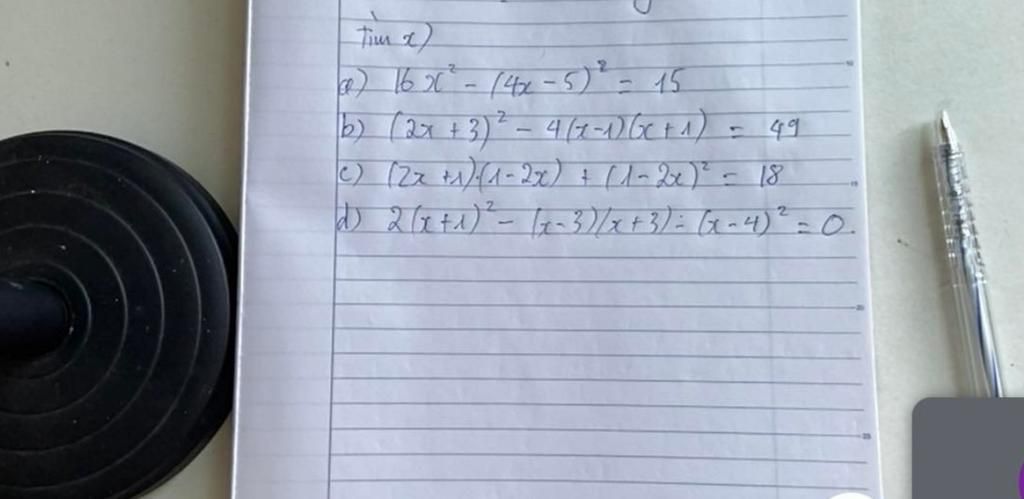 Tìm x)
a) 16x² - (4x - 5)² = 15
b) (2x + 3)² - 4(x-1)(x + 1) = 49
c) (2x + 1)·(1 - 2x) + (1 - 2x)² = 18
d) 2(x+1)² - (x-3)(x+3) - (x-4)² = 0.